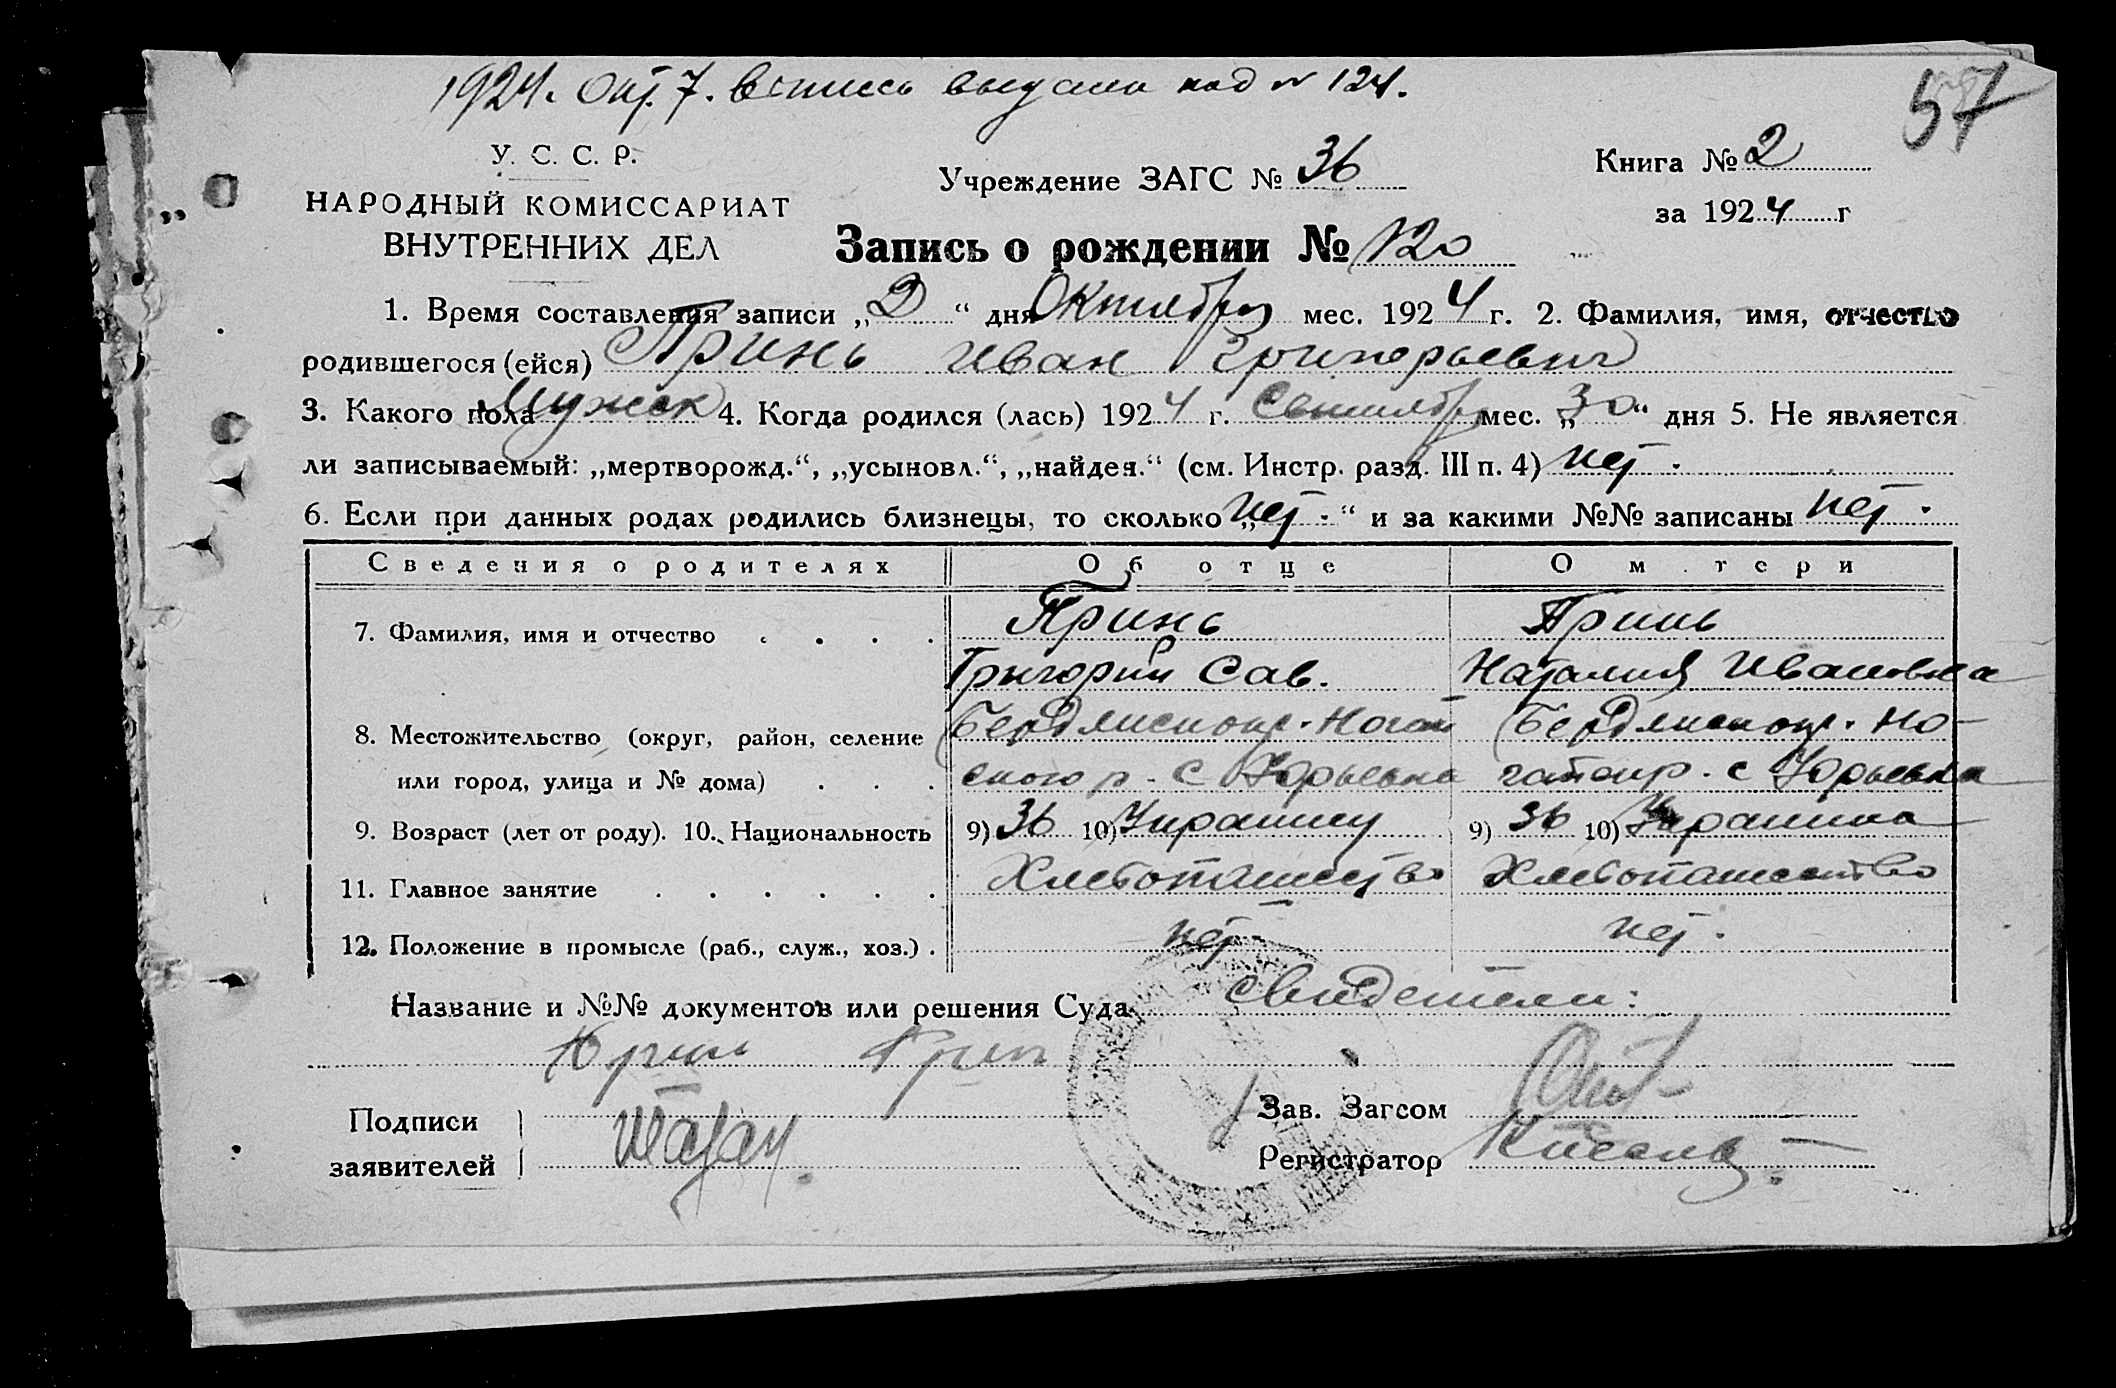 1924. Окт. 7. Выпись выдана под № 124.
57
У. С. С. Р.
НАРОДНЫЙ КОМИССАРИАТ
ВНУТРЕННИХ ДЕЛ
Учреждение ЗАГС № 36
Книга № 2
за 1924 г
Запись о рождении № 120
1. Время составления записи „2“ дня Октября мес. 1924 г. 2. Фамилия, имя, отчество
родившегося (ейся) Принь Иван Григорьевич
3. Какого пола Мужск 4. Когда родился (лась) 1924 г. Сентября мес. „30“ дня 5. Не является
ли записываемый: „мертворожд.“, „усыновл.“, „найден.“ (см. Инстр. разд. III п. 4) нет.
6. Если при данных родах родились близнецы, то сколько „нет.“ и за какими №№ записаны нет.
Сведения о родителях Об отце О м тери
7. Фамилия, имя и отчество . . . . Принь Принь
Григорий Сав. Наталия Ивановна
8. Местожительство (округ, район, селение Бердянск окр. Ногай Бердянск окр. Но-
или город, улица и № дома) . . . ского р. с Юрьевка гайск р. с Юрьевка
9. Возраст (лет от роду). 10. Национальность 9) 36 10) Украинец 9) 36 10) Украинка
11. Главное занятие . . . . . Хлебопашество Хлебопашество
12. Положение в промысле (раб., служ., хоз.) . нет нет.
Название и №№ документов или решения Суда свидетели:
Подписи
заявителей
Зав. Загсом
Регистратор